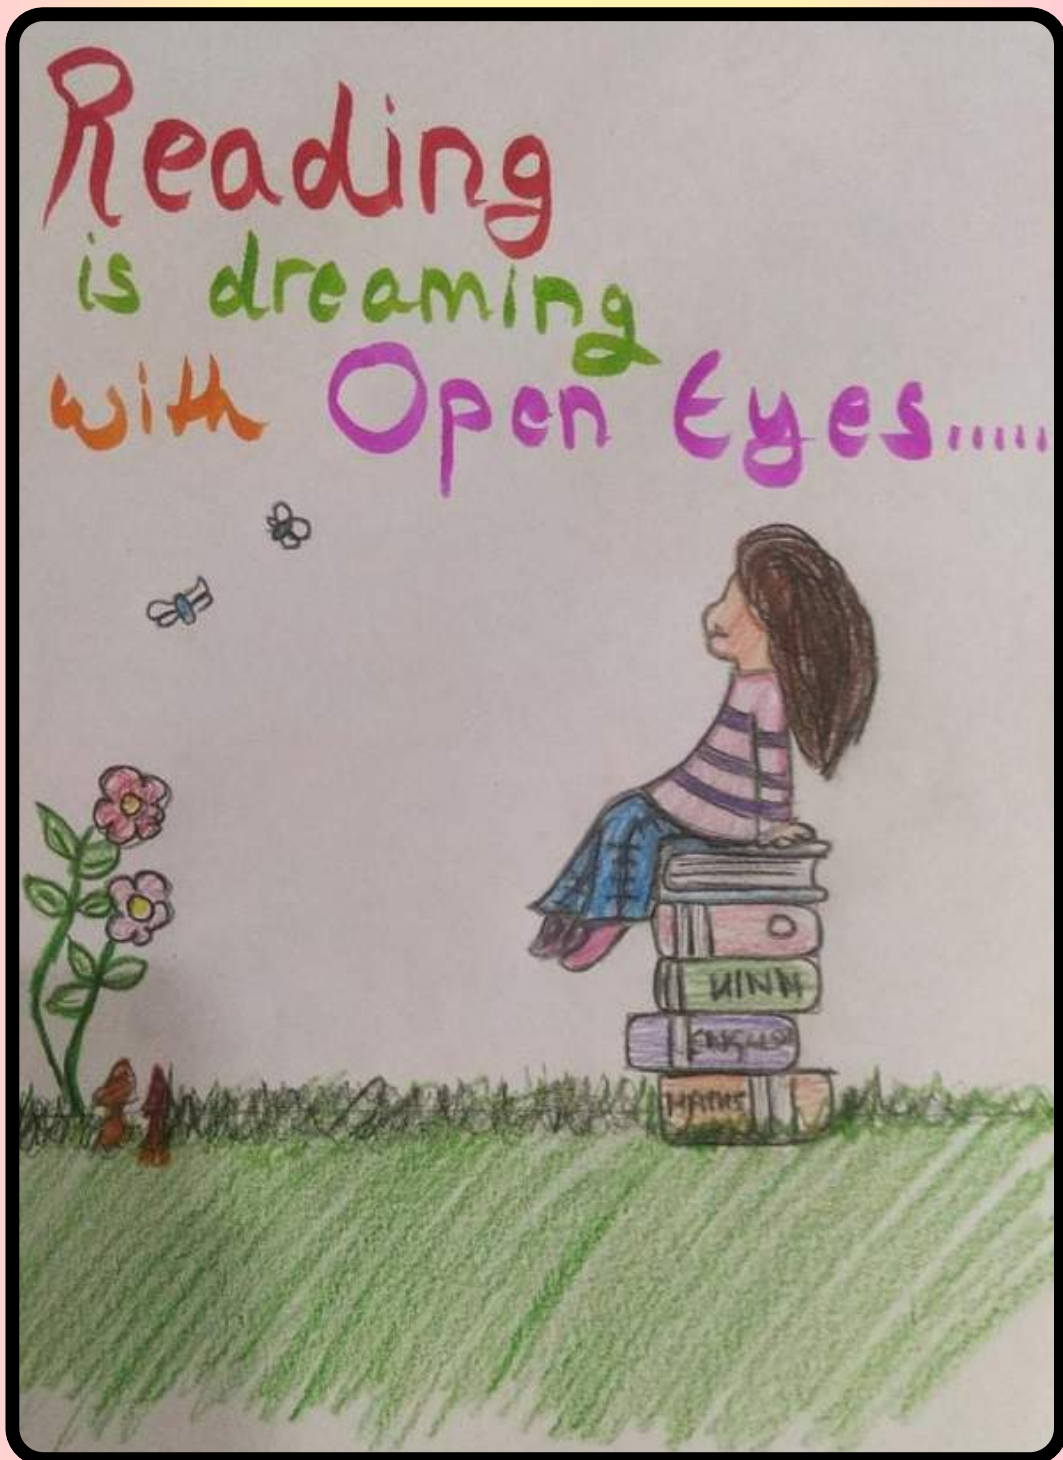 Reading
is dreaming
with Open Eyes.....
ENGLISH
MATHS